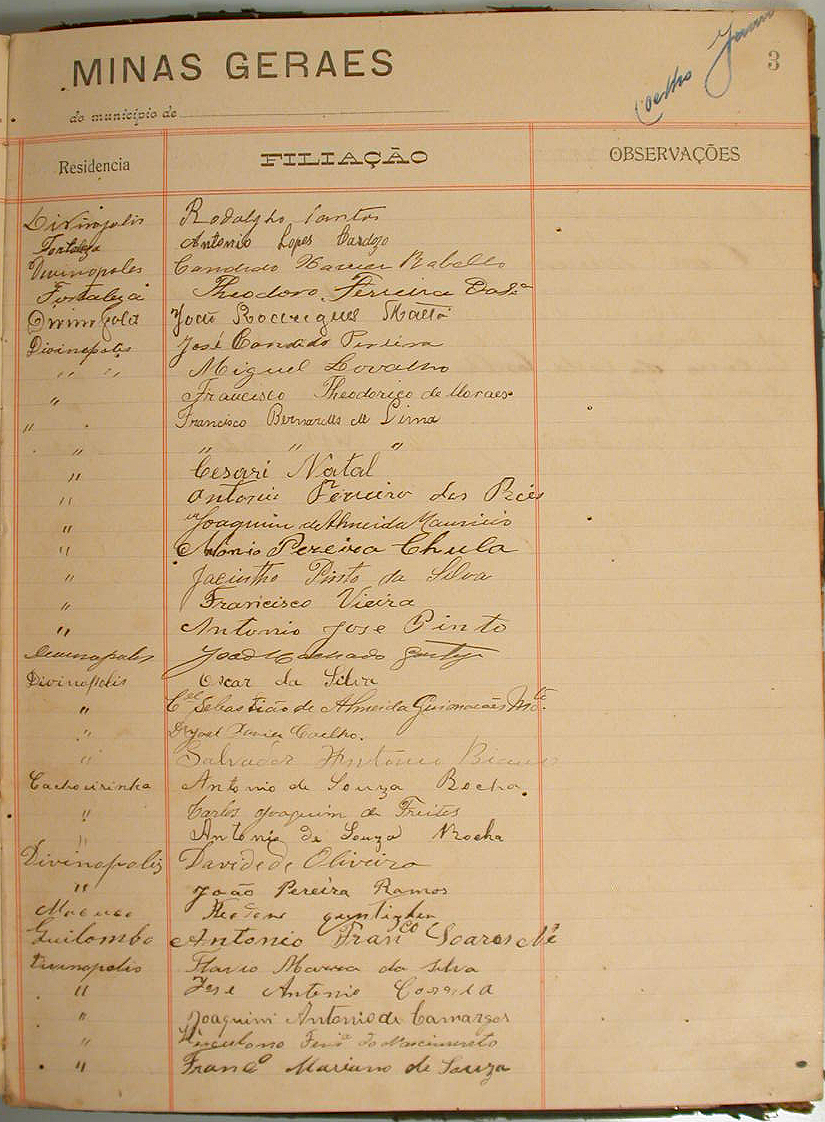 Coelho
3
MINAS GERAES
do municipio de
Residencia FILIAÇÃO OBSERVAÇÕES
Divinopolis Rodolpho Santos
Fortaleza Antonio Lopes Cardozo
Divinopoles Candido Xavier Rabello
Fortaleza Theodoro Pereira
João Rodrigues Matta
Divinopolis José Candido Pereira
" " Miguel
" Francisco Theodorico de Moraes
" " Francisco Bernardes Lima
" " " "
" Cesari Natal
" Antonio Ferreira dos Reis
" Joaquim de Almeida Mauricio
" Pereira Chula
" Jacintho Pinto da Silva
" Francisco Vieira
" Antonio Jose Pinto
Divinopolis João Machado
Divinopolis Oscar da Silva
" Cel Sebastião de Almeida Guimarães
" Dr José Xavier Coelho.
" Salvador Antonio
Cachoeirinha Antonio de Souza Rocha
" Carlos Joaquim de Freitas
" Antonio de Souza Rocha
Divinopolis Davide de Oliveira
" João Pereira Ramos
Guilombo Antonio Franco Soares
Divinopolis Flavio da Silva
" Jose Antonio Correia
" Joaquim Antonio de Camargos
" do Nascimento
" Franco Mariano de Souza